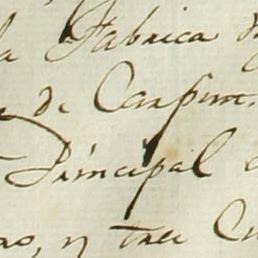 la Fabrica d
de Carpin.
Principal
no, y tres Cu